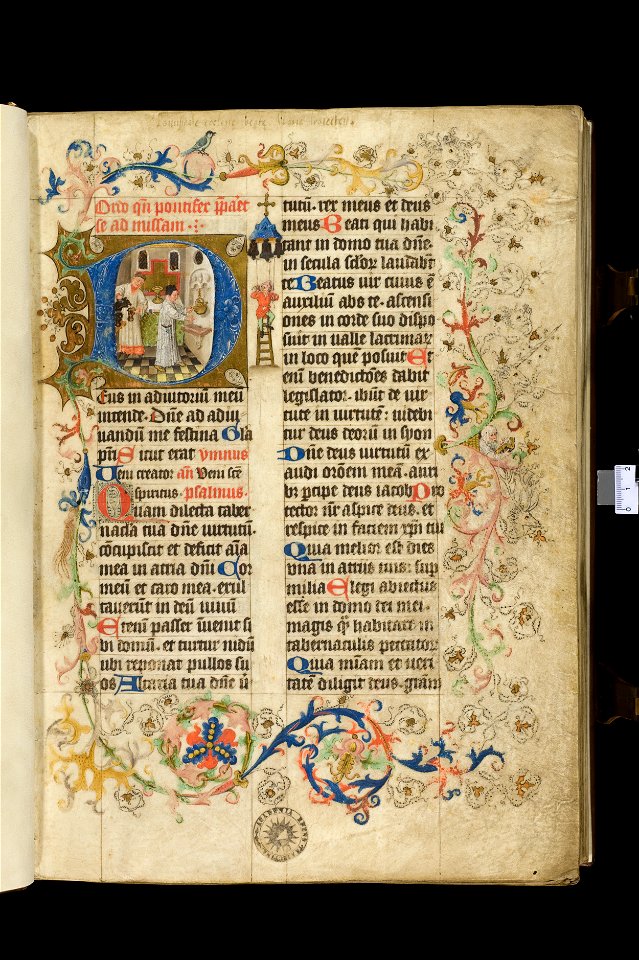 Ordo qn pontifex ppaet
se ad missam
Deus in adiutoriu meu
intende. Dne ad adiu
uandu me festina Gla
pri Sicut erat ymnus
Veni creator an Veni sce
spiritus. psalmus.
Quam dilecta taber
nacla tua dne uirtutu.
cocupiscit et deficit aia
mea in atria dni Cor
meu et caro mea. exul
tauerut in deu uiuu
Etenu passer iuenit si
bi domu. et turtur nidu
ubi reponat pullos su
os Altaria tua dne u
tutu. rex meus et deus
meus Beati qui habi
tant in domo tua dne.
in secula sclor laudabut
te Beatus uir cuius e
auxiliu abs te. ascensi
ones in corde suo dispo
suit in ualle lacrimar
in loco que posuit Et
eni benedictoes dabit
legislator. ibut de uir
tute in uirtute: uidebi
tur deus deoru in syon
Dne deus uirtutu ex
audi oroem mea. auri
bus pcipe deus iacob Pro
tector nr aspice deus. et
respice in faciem xpi tui
Quia melior est dies
una in atriis tuis: sup
milia Elegi abiectus
esse in domo dei mei.
magis qz habitare in
tabernaculis peccatoz
Quia miam et ueri
tate diligit deus. gram
0 1 2